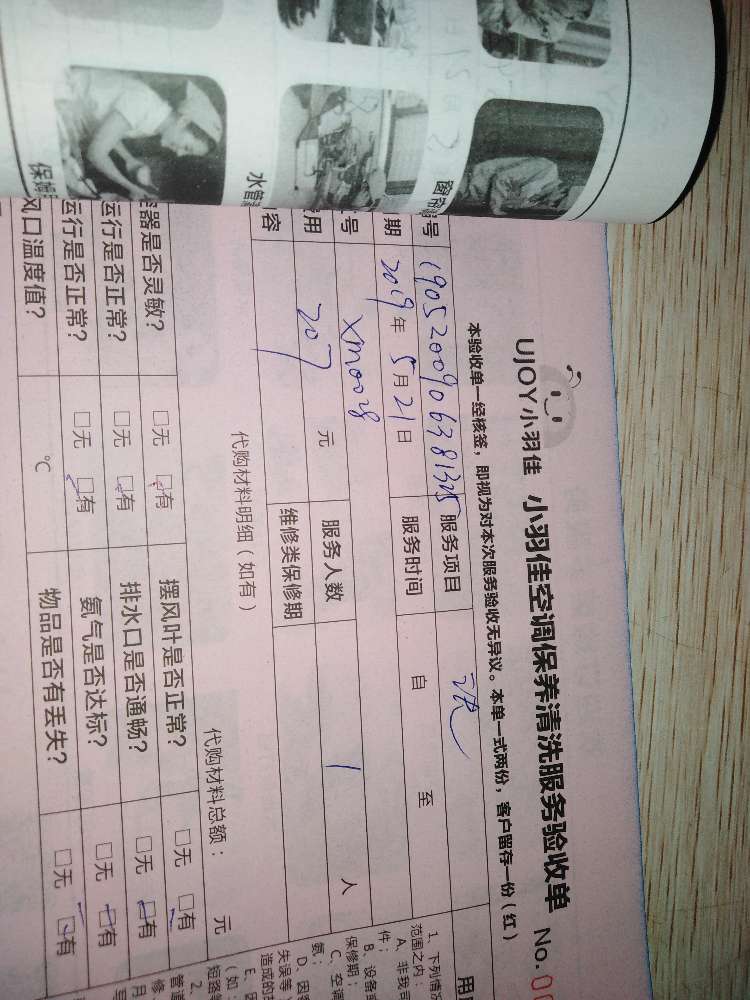 UJOY小羽佳 小羽佳空调保养清洗服务验收单 No.
本验收单一经核签，即视为对本次服务验收无异议。本单一式两份，客户留存一份(红)
号 1905200906381325 服务项目
期 2019年5月21日 服务时间 自 至
号 xm0028
用 207 元 服务人数 1 人
容 维修类保修期
代购材料明细(如有) 代购材料总额: 元
器是否灵敏? □无 □有 摆风叶是否正常? □无 □有
运行是否正常? □无 □有 排水口是否通畅? □无 □有
运行是否正常? □无 □有 氨气是否达标? □无 □有
风口温度值? ℃ 物品是否有丢失? □无 □有
水管
窗帘
用
1、下列情
范围之内:
A、非我司
件;
B、设备
保修期;
C、空
氨;
D、因
失误等
造成的
E、因
(如:
短路
2、
管道
修.
月